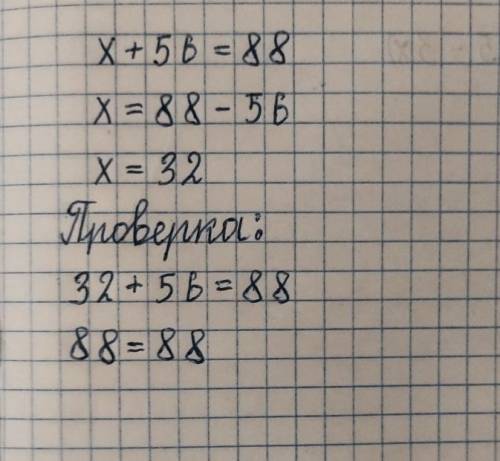 x + 56 = 88
x = 88 - 56
x = 32
Проверка:
32 + 56 = 88
88 = 88